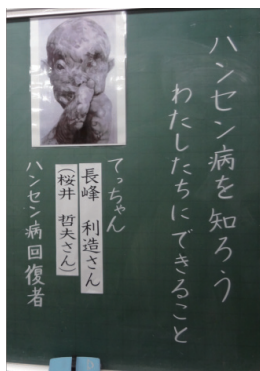 ハンセン病を知ろう
わたしたちにできること
てっちゃん
長峰 利造さん
(桜井 哲夫さん)
ハンセン病回復者